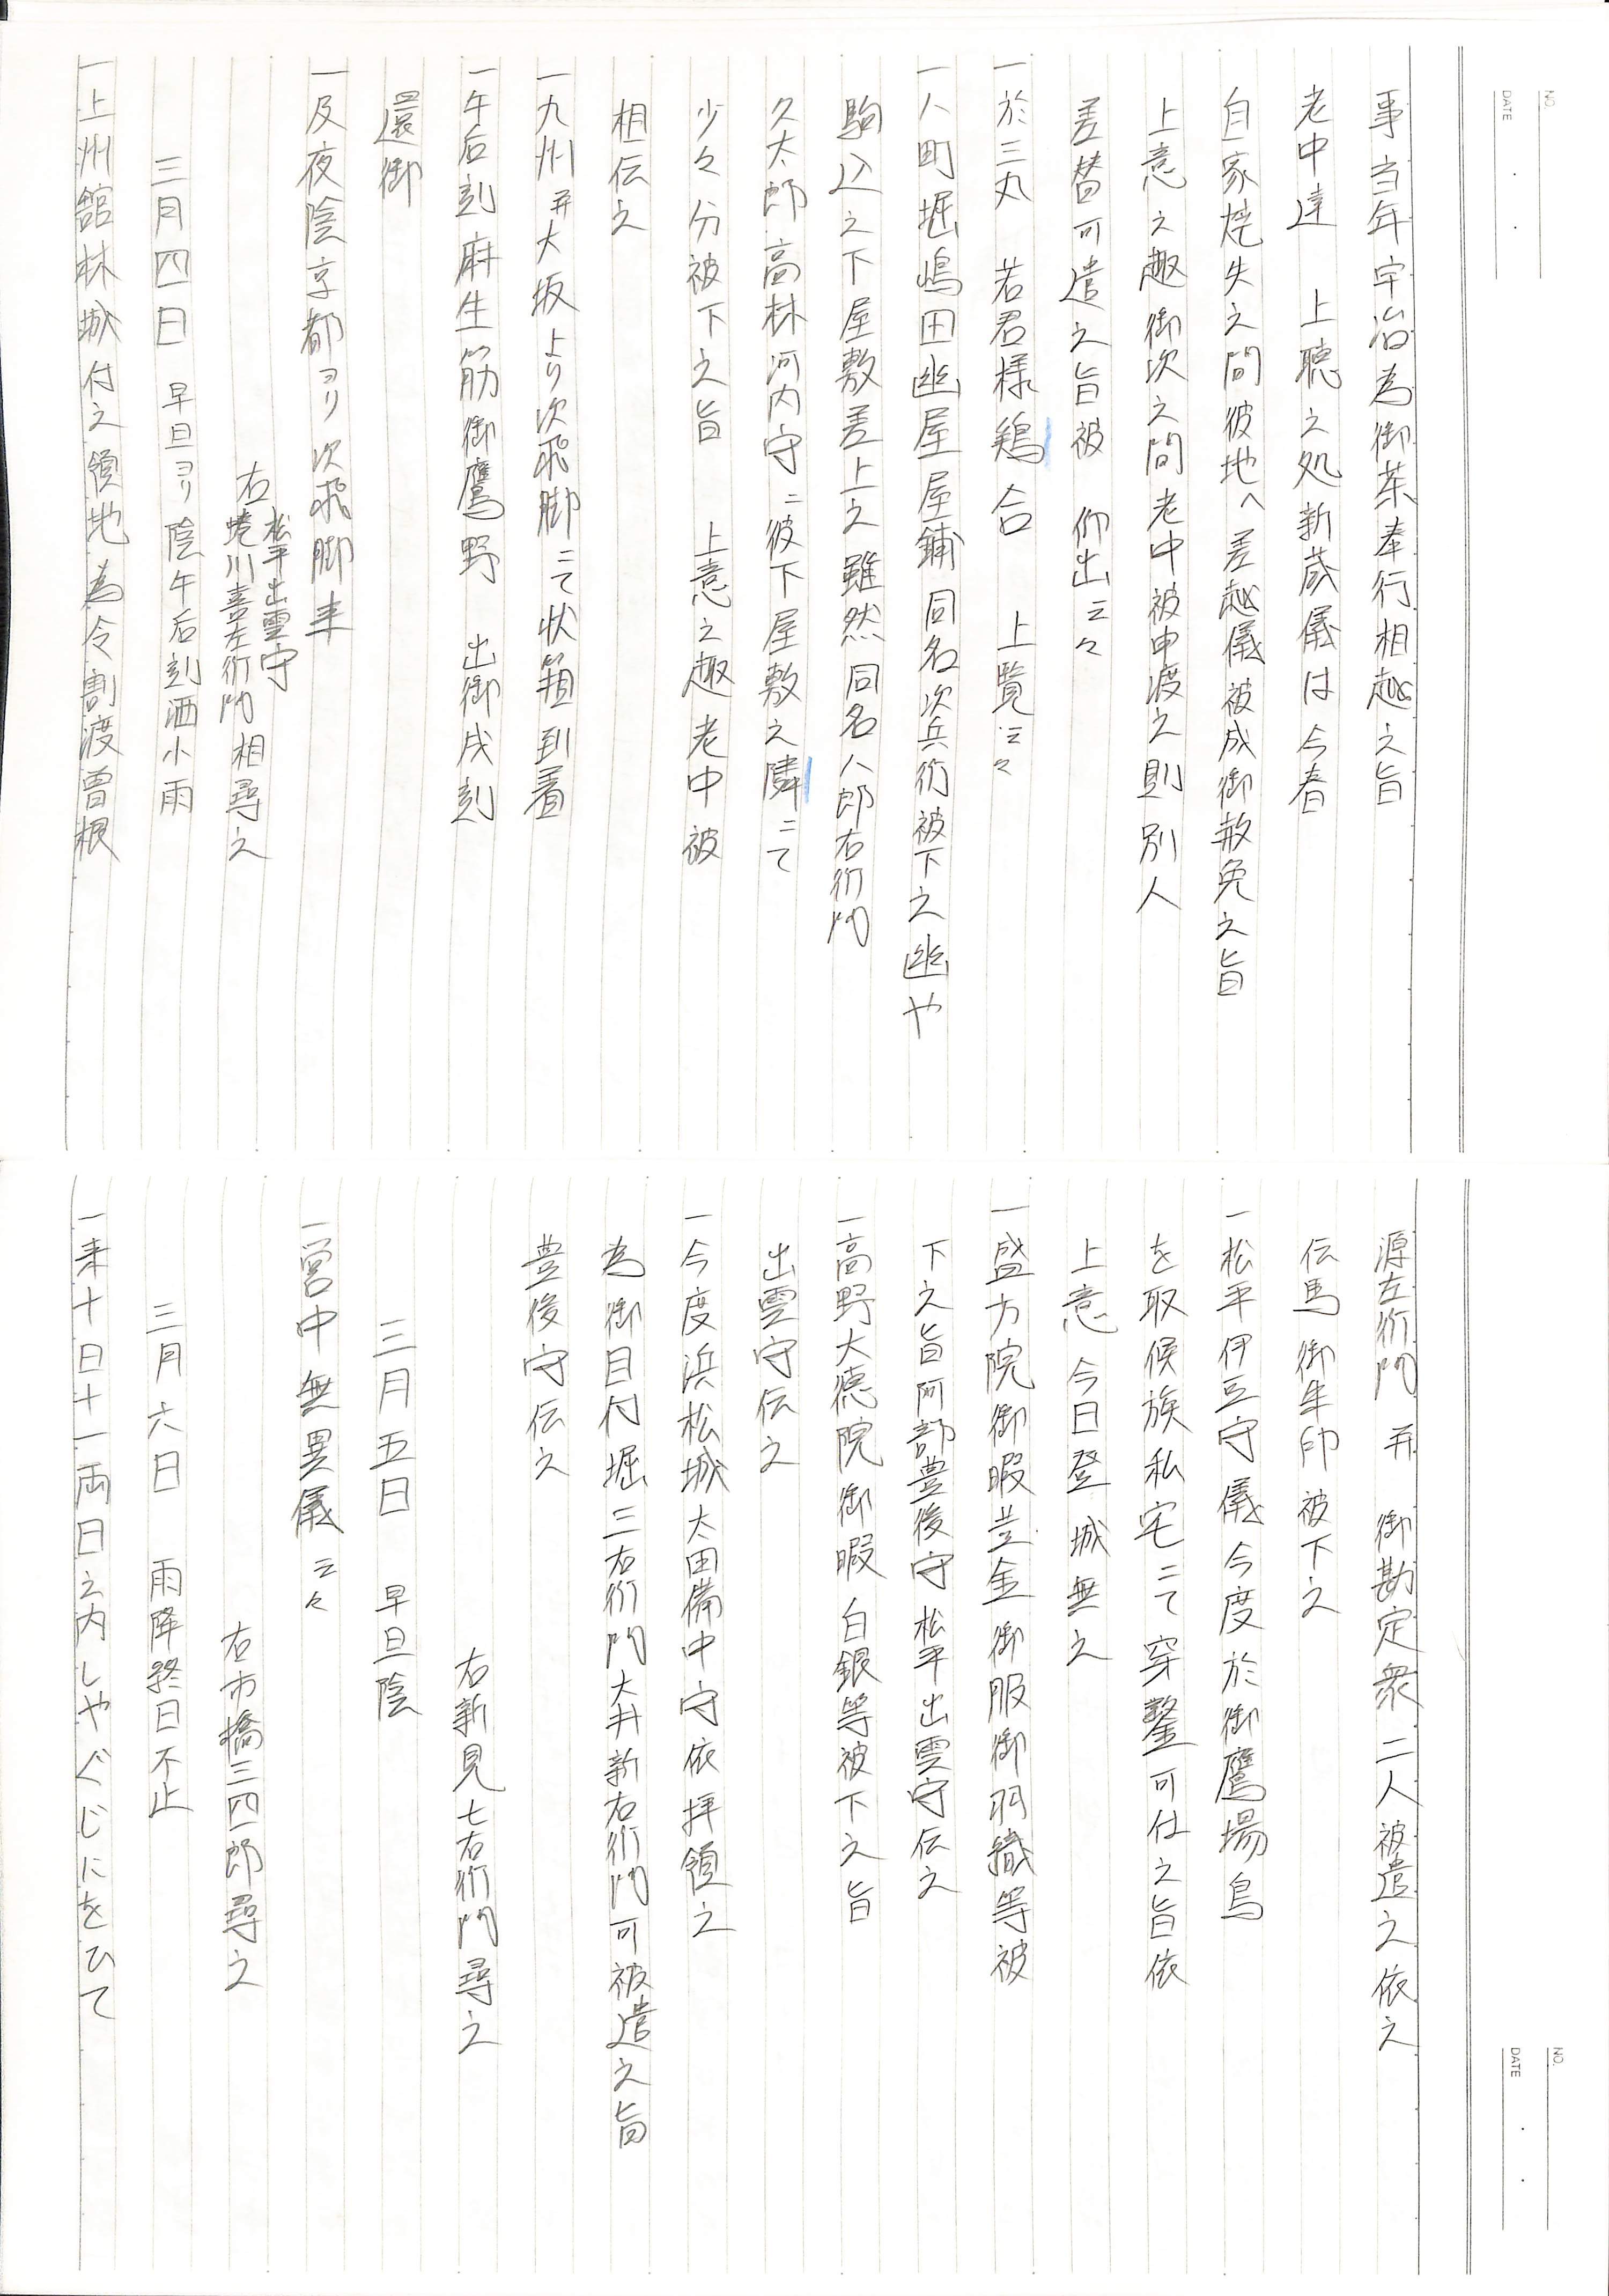 NO.
DATE
事当年宇治為御茶奉行相越之旨
老中達　上聴之処新蔵儀は今春
自家焼失之間彼地へ差越儀被成御赦免之旨
上意之趣御次之間老中被申渡之則別人
差替可遣之旨被　仰出云々
一於三丸　若君様鶏合　上覧云々
一八町堀嶋田幽屋屋鋪同名次兵衛被下之幽や
駒込之下屋敷差上之雖然同名八郎右衛門
久太郎高林河内守ニ彼下屋敷之隣ニて
少々分被下之旨　上意之趣老中被
相伝之
一九州并大坂より次飛脚ニて状箱到着
一午后刻麻生筋御鷹野　出御戌刻
還御
一及夜陰京都ヨリ次飛脚来
右松平出雲守
蜷川喜左衛門相尋之
三月四日　早旦ヨリ陰午后刻洒小雨
一上州舘林城付之領地為令割渡曽根
NO.
DATE
源左衛門并　御勘定衆二人被遣之依之
伝馬御朱印被下之
一松平伊豆守儀今度於御鷹場鳥
を取候族私宅ニて穿鑿可仕之旨依
上意今日登城無之
一盛方院御暇並金御服御羽織等被
下之旨阿部豊後守松平出雲守伝之
一高野大徳院御暇白銀等被下之旨
出雲守伝之
一今度浜松城太田備中守依拝領之
為御目付堀三右衛門大井新右衛門可被遣之旨
豊後守伝之
右新見七右衛門尋之
三月五日　早旦陰
一営中無異儀云々
右市橋三四郎尋之
三月六日　雨降終日不止
一来十日十一両日之内しやぐじにをひて